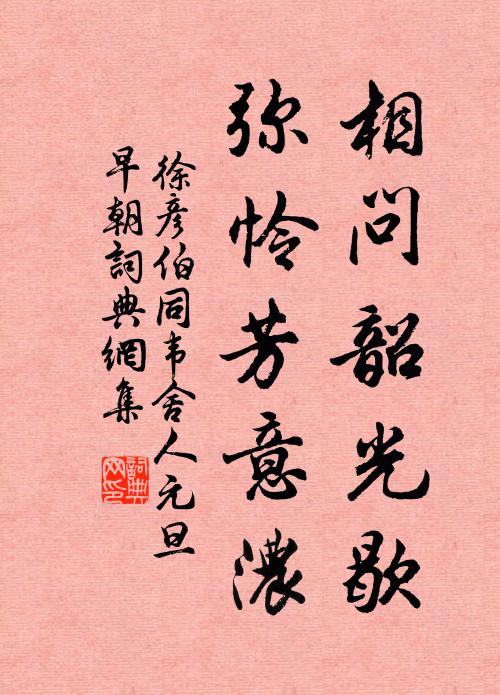 相问韶光歇
弥怜芳意濃
徐彦伯同韦舍人元旦
早朝詞典網集
詞典
网印